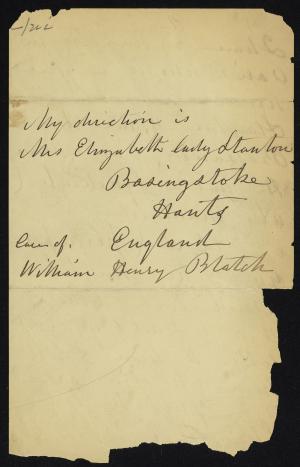 My direction is
Mrs Elizabeth Cady Stanton
Basingstoke
Hants
England
Care of.
William Henry Blatch